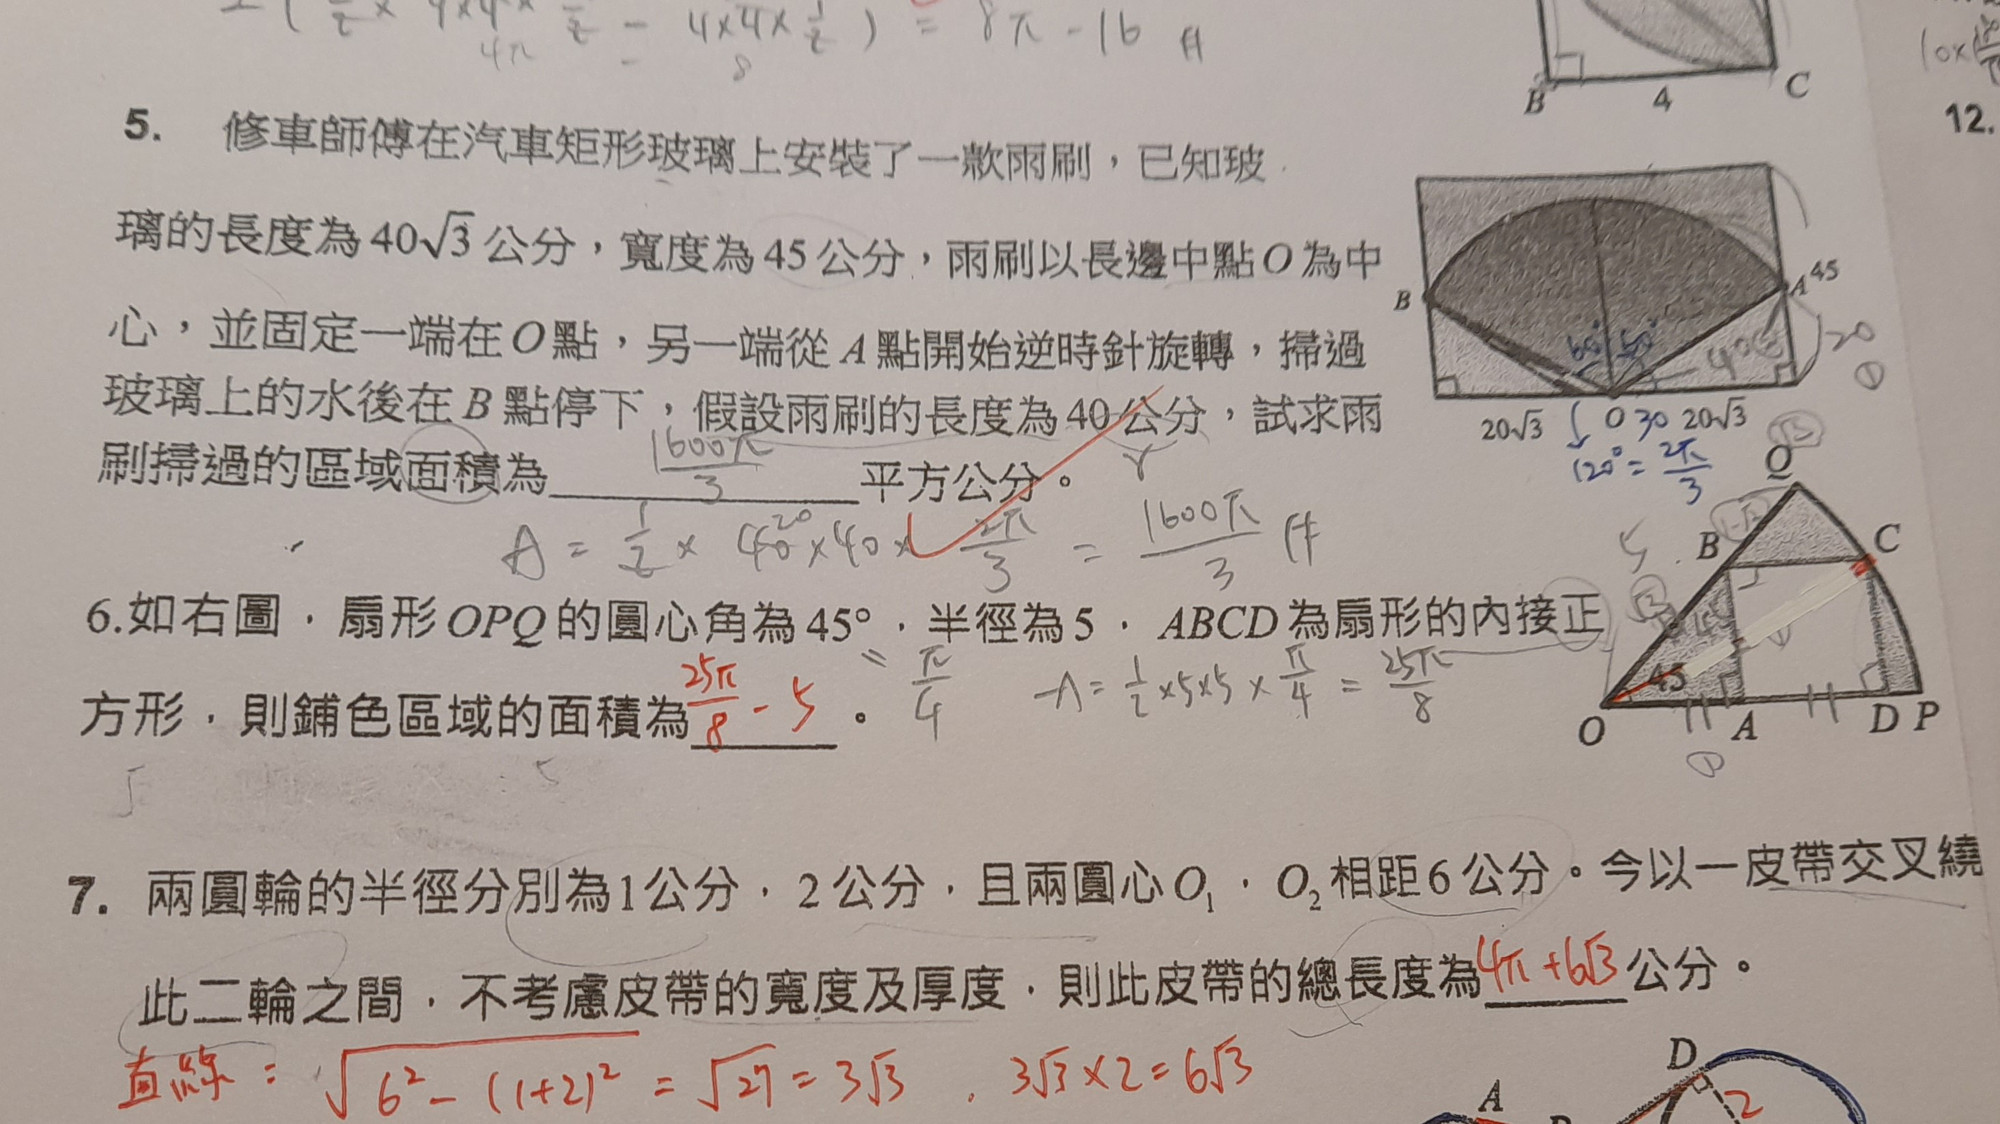 = 8π - 16 #
4π
8
B
4
C
12.
5. 修車師傅在汽車矩形玻璃上安裝了一款雨刷，已知玻
璃的長度為 40√3 公分，寬度為 45 公分，雨刷以長邊中點 O 為中
心，並固定一端在 O 點，另一端從 A 點開始逆時針旋轉，掃過
玻璃上的水後在 B 點停下，假設雨刷的長度為 40 公分，試求雨
刷掃過的區域面積為 1600π/3 平方公分。
r
A = 1/2 × 40 × 40 × 2π/3 = 1600π/3 #
20
B
A
45
20
20√3
O
30
20√3
120° = 2π/3
6.如右圖，扇形 OPQ 的圓心角為 45°，半徑為 5， ABCD 為扇形的內接正
= π/4
A = 1/2 × 5 × 5 × π/4 = 25π/8
方形，則鋪色區域的面積為 25π/8 - 5 。
Q
B
C
5
45
O
A
D
P
7. 兩圓輪的半徑分別為1公分，2 公分，且兩圓心 O₁ ， O₂ 相距 6 公分。今以一皮帶交叉繞
此二輪之間，不考慮皮帶的寬度及厚度，則此皮帶的總長度為 4π+6√3 公分。
直線 : √(6² - (1+2)²) = √27 = 3√3 , 3√3 × 2 = 6√3
D
A
2